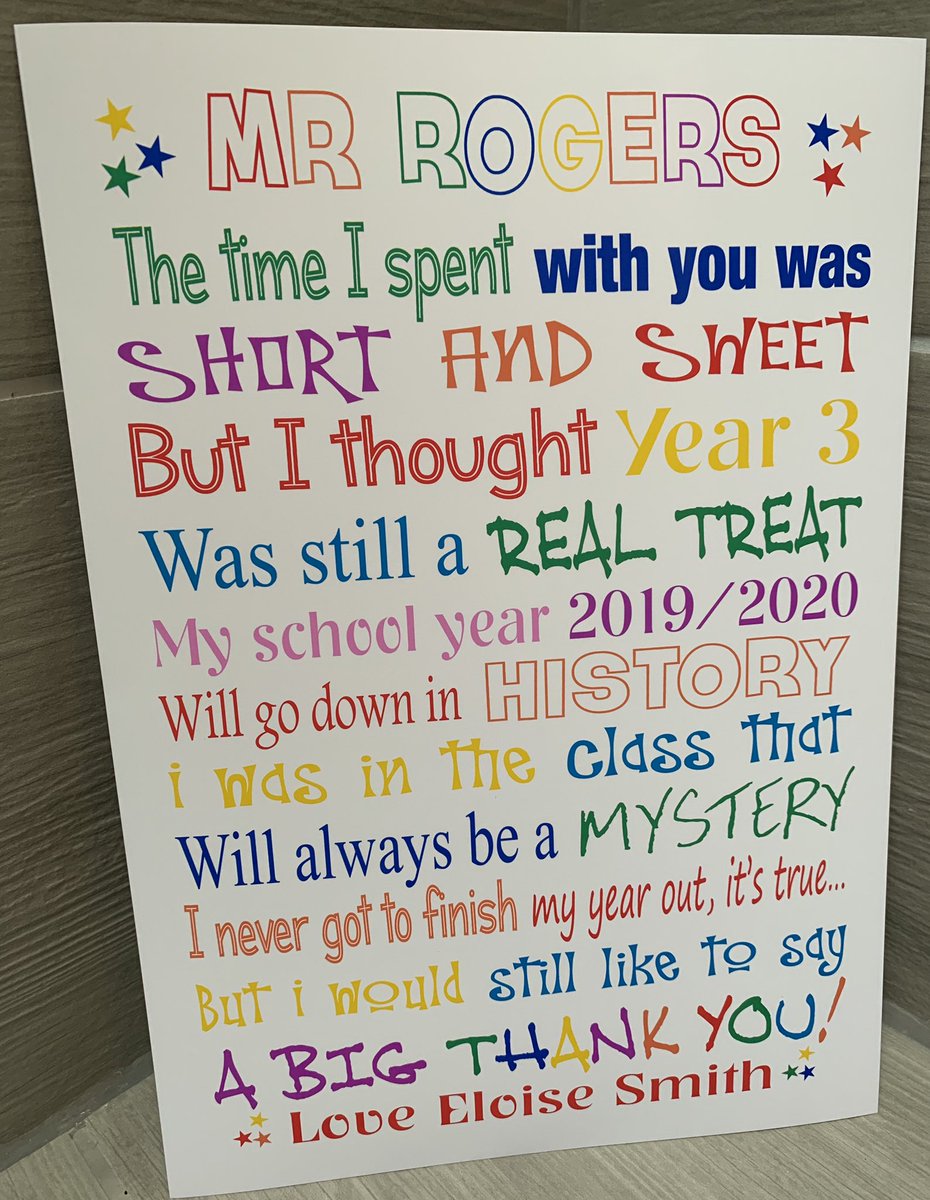 MR ROGERS
The time I spent with you was
SHORT AND SWEET
But I thought Year 3
Was still a REAL TREAT
My school year 2019/2020
Will go down in HISTORY
i was in the class that
Will always be a MYSTERY
I never got to finish my year out, it's true...
But i would still like to say
A BIG THANK YOU!
Love Eloise Smith